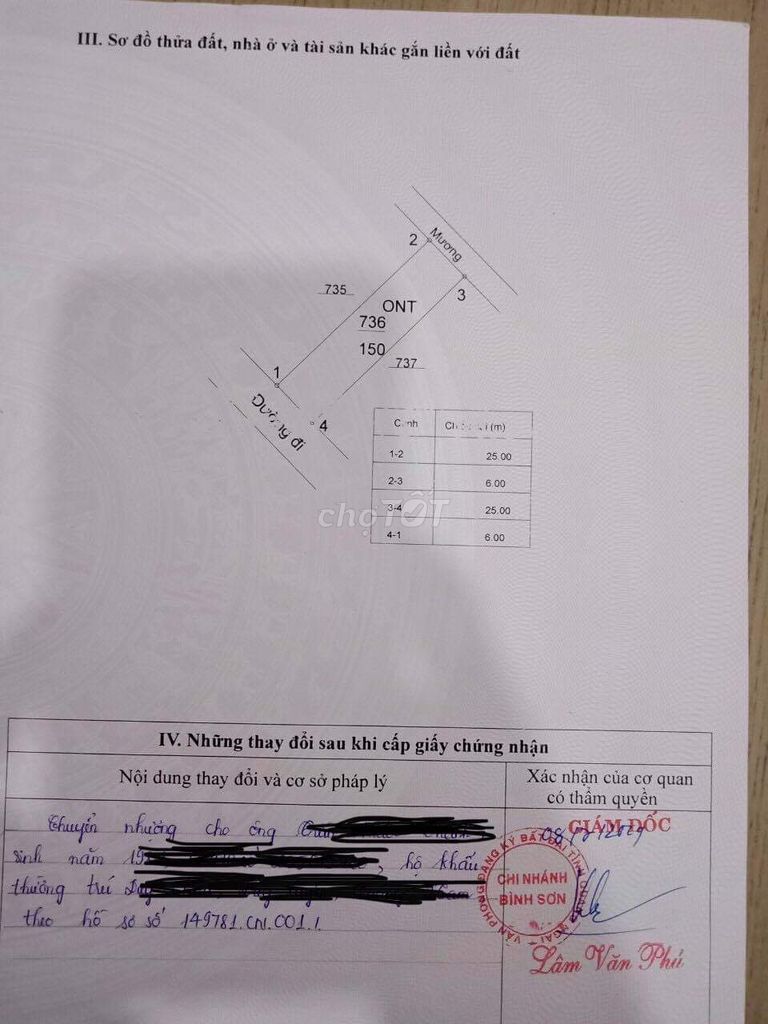 III. Sơ đồ thửa đất, nhà ở và tài sản khác gắn liền với đất
Mương
2
3
735
ONT
736
150
737
1
4
Đường đi
Cạnh
(m)
1-2
25.00
2-3
6.00
3-4
25.00
4-1
6.00
chợTỐT
IV. Những thay đổi sau khi cấp giấy chứng nhận
Nội dung thay đổi và cơ sở pháp lý
Xác nhận của cơ quan
có thẩm quyền
Chuyển nhượng cho ông
sinh năm 19 , hộ khẩu
thường trú
theo hồ sơ số 149781.CN.001.1
GIÁM ĐỐC
VĂN PHÒNG ĐĂNG KÝ ĐẤT ĐAI TỈNH QUẢNG NGÃI
CHI NHÁNH
BÌNH SƠN
Lâm Văn Phú